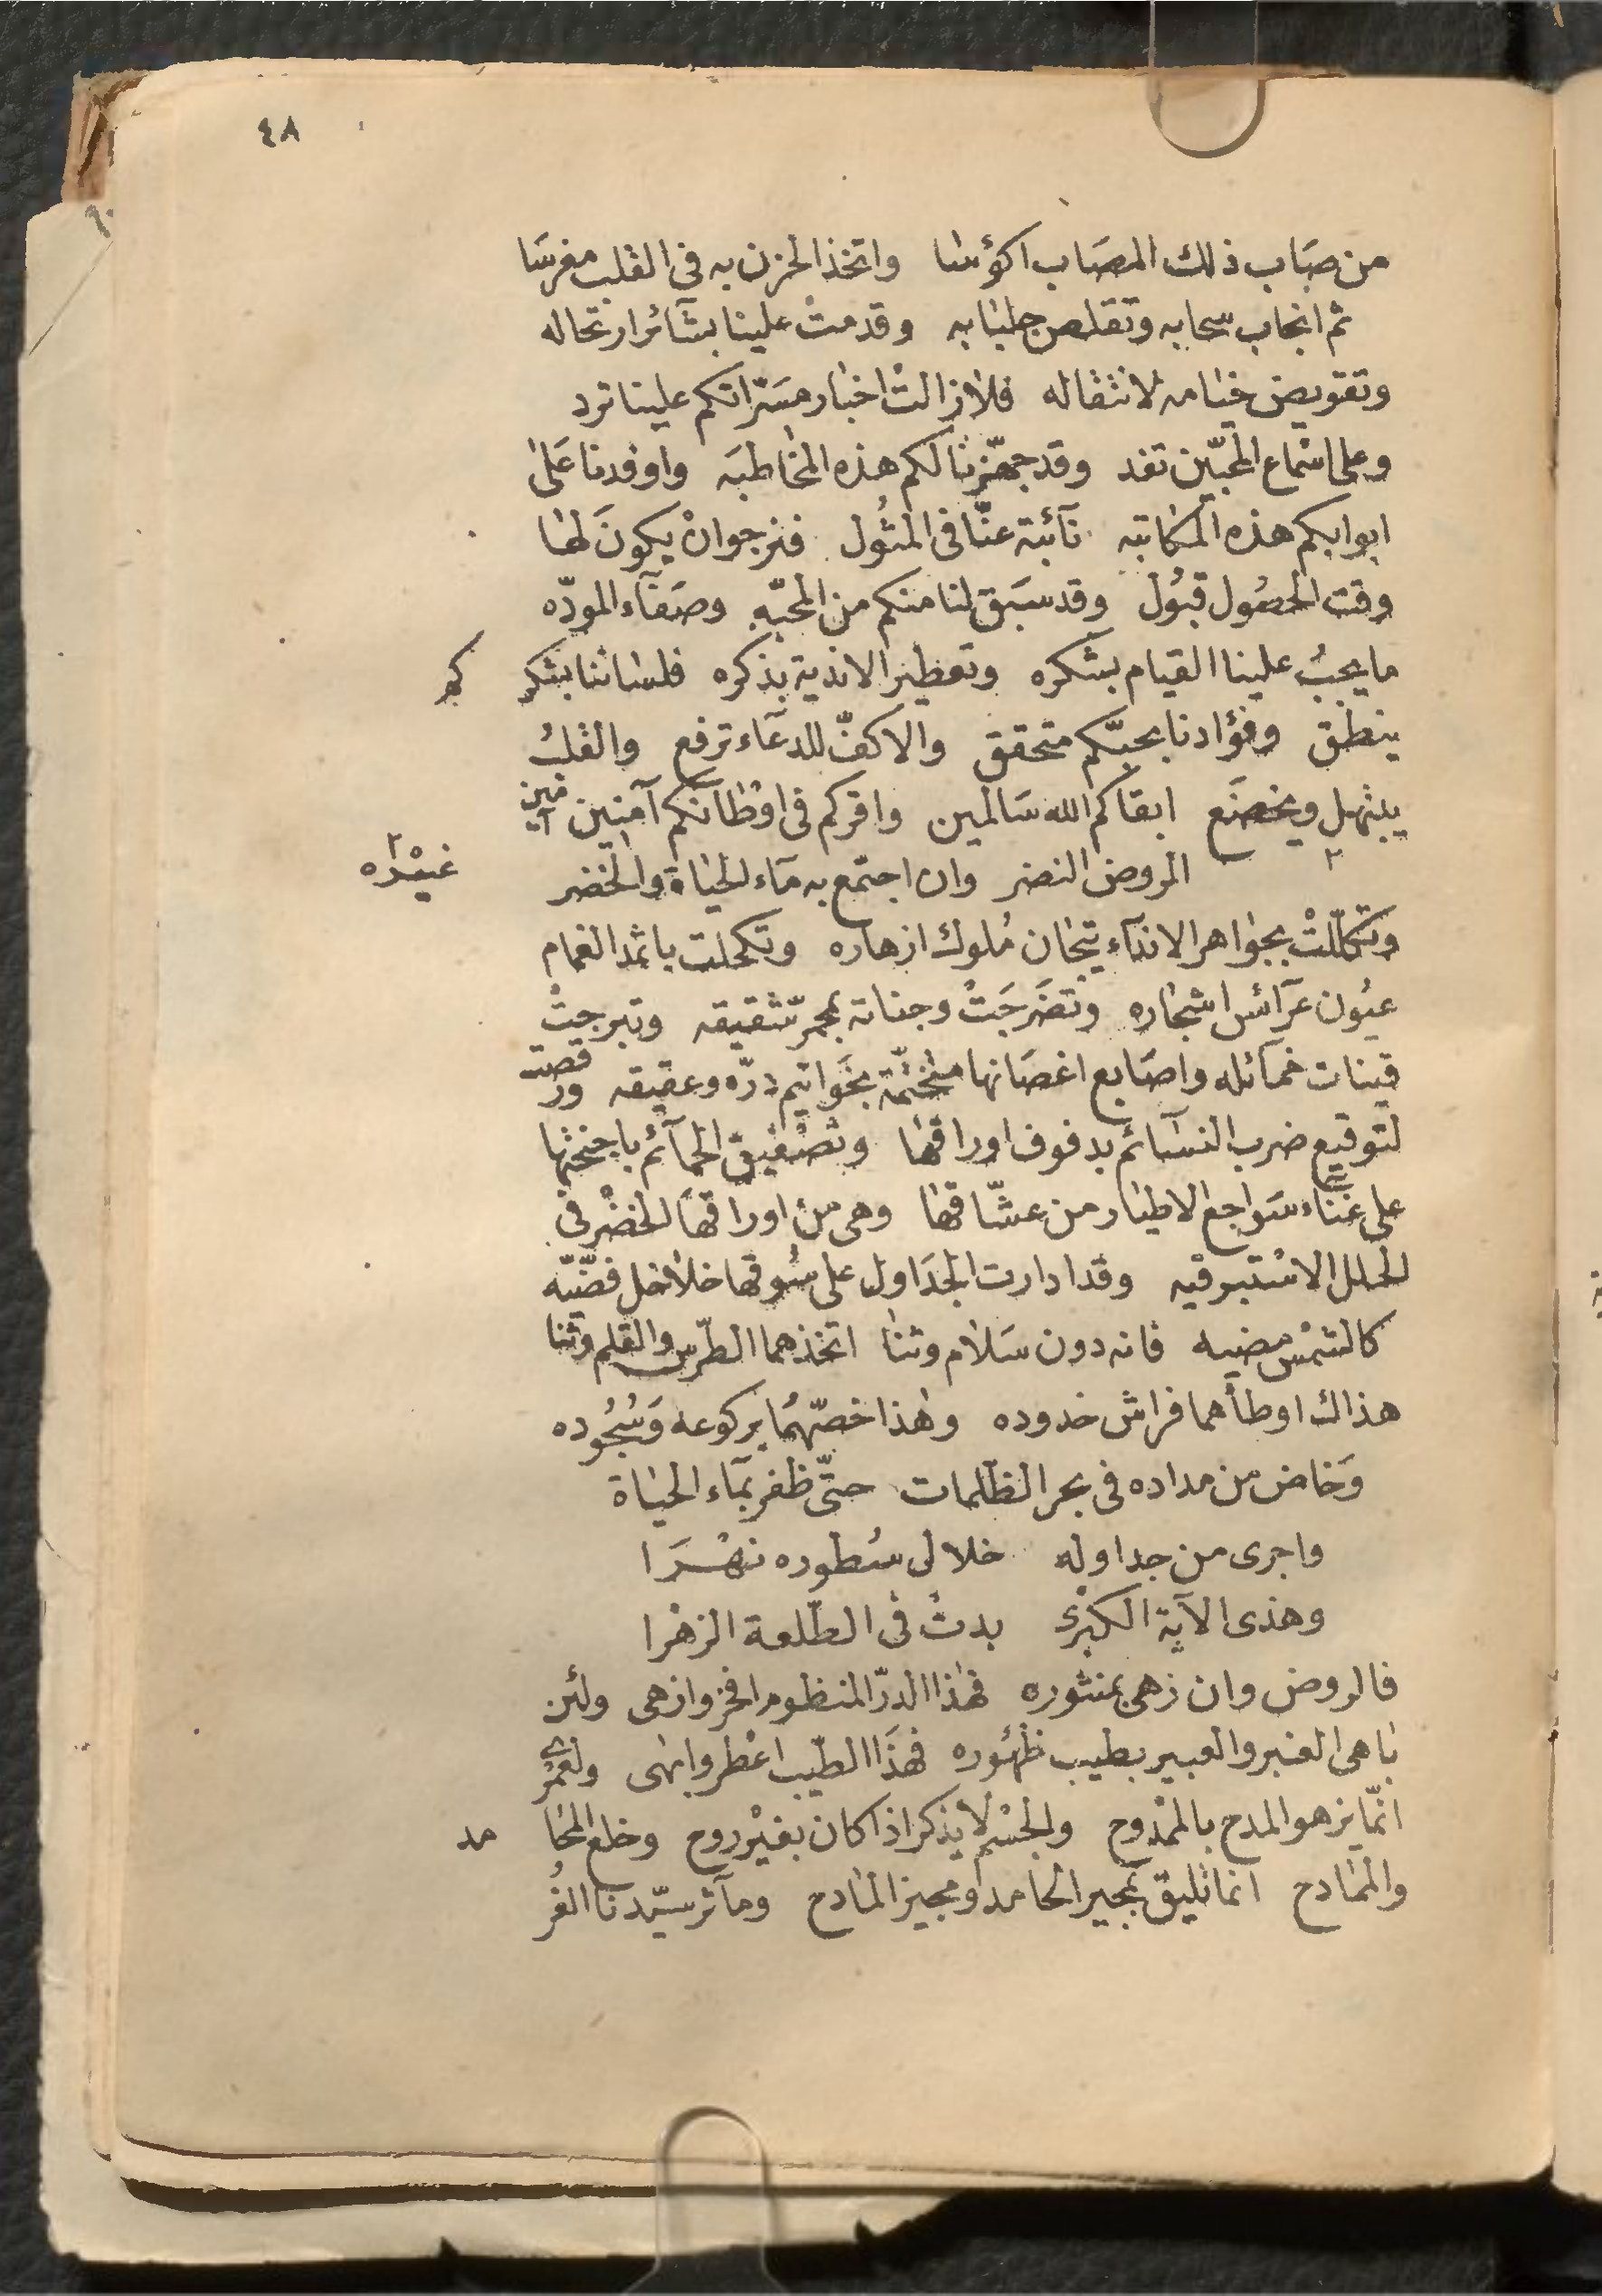 ٤٨
من صَاب ذلك المصَاب اكؤسًا واتخذ الحزن به في القلب مغرسَا
ثم انجاب سحابه وتقلص جلبابه وقدمتْ علينا بشآئر ارتحاله
وتقويض خيامه لانتقاله فلا زالتْ اخبار مسَرّاتكم علينا ترد
وعلى اسْماع المحبّين تفد وقد جهّزنا لكم هذه المخاطبَه واوفدنا عَلى
ابوابكم هذه المكاتبه نآئبة عنّا في المثُول فنرجوا انْ يكونَ لها
وقت الحصُول قبُول وقد سَبَق لنا منكم من المحبّه وصَفآء المودّه
ما يجبُ علينا القيام بشكره وتعطير الاندية بذكره فلسَاننا بشكر كم
ينطق وفؤادنا بحبّكم متحقق والاكفّ للدعآء ترفع والقلبُ
يبتهل ويخضَع ابقاكم الله سَالمين واقركم في اوْطانكم آمنين آمين
الروض النضر وان اجتمع به مآء الحيَاة والخضر غيره
وتكلّلتْ بجوَاهر الاندآء تيجَان مُلوك ازهاره وتكحلت باثمد الغمام
عيُون عرآئس اشجَاره وتضَرجَتْ وجناته بمحمرّ شقيقه وتبرجتْ
قينات خمآئله واصَابع اغصَانها متختّمَة بخَواتيم درّه وعقيقه ورقصت
لتوقيع ضرب النسَآئم بدفوف اوراقهَا وتصْفيق الحمآئم باجنحتها
على غنَّاء سَواجع الاطيَار من عشّاقهَا وهى من اوراقهَا الخضْر في
الحلل الاسْتبرقيه وقد ادارت الجدَاول على سُوقها خلاخل فضّيّه
كالشمْس مضيه فانه دون سَلام وثنا اتخذهما الطّرس والقلم وثنا
هذاك اوطأهما فراش خدوده وهٰذا خصّهُما بركوعه وَسُجُوده
وَخاض من مداده في بحر الظلمات حتّى ظفر بمآء الحيَاة
واجرى من جداوله خلال سُطوره نهْرَا
وهذى الآية الكبْرى بدتْ في الطّلعة الزهْرا
فالروض وان زهى بمنثوره فهٰذا الدرّ المنظوم افخر وازهى ولئن
باهى العنبر والعبير بطيب ظهُوره فهٰذَا الطّيب اعْطر وابهى ولعمْرى
انّما يزهو المدح بالممْدوح والجسْم لا يذكر اذا كان بغيْر روح وخلع المحَا مد
والممَادح انما تليق بمجير الحامد ومجيز المَادح ومآثر سيّدنا الغُر